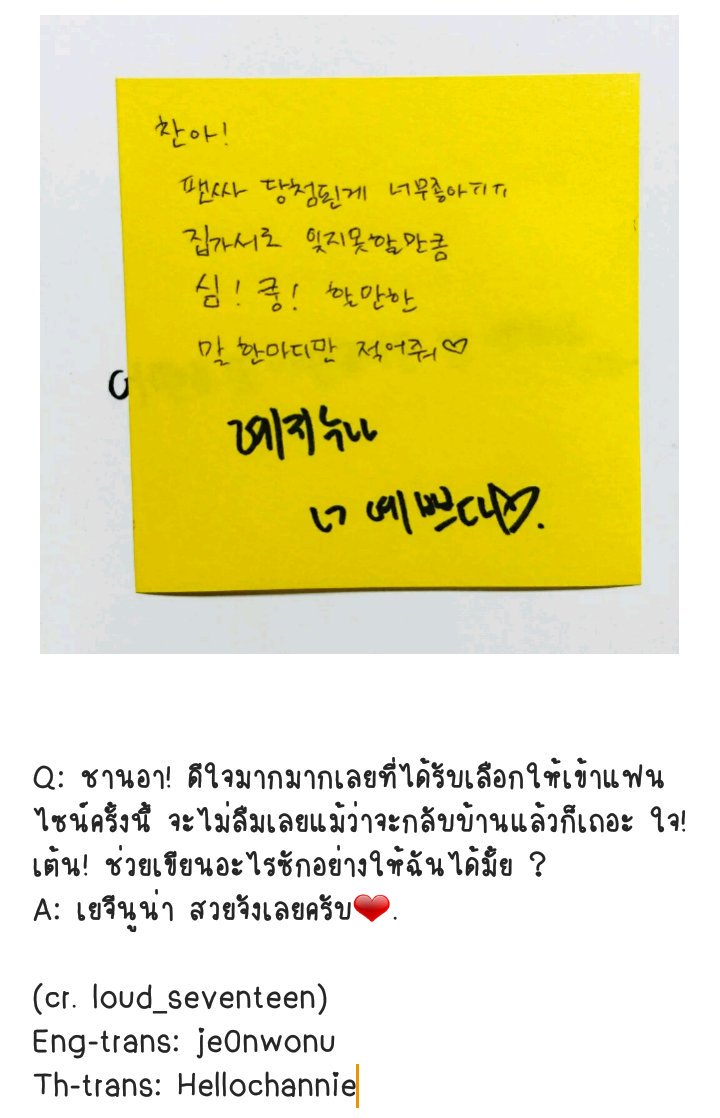 찬아!
팬싸 당첨된게 너무좋아ㅠㅠ
집가서도 잊지못할만큼
심! 쿵! 할만한
말 한마디만 적어줘♡
예지누나
너 예쁘다♡.
Q: ชานอา! ดีใจมากมากเลยที่ได้รับเลือกให้เข้าแฟน
ไซน์ครั้งนี้ จะไม่ลืมเลยแม้ว่าจะกลับบ้านแล้วก็เถอะ ใจ!
เต้น! ช่วยเขียนอะไรซักอย่างให้ฉันได้มั้ย ?
A: เยจีนูน่า สวยจังเลยครับ❤.
(cr. loud_seventeen)
Eng-trans: je0nwonu
Th-trans: Hellochannie